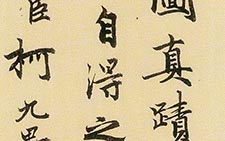 圖真蹟
自得之
臣柯九思